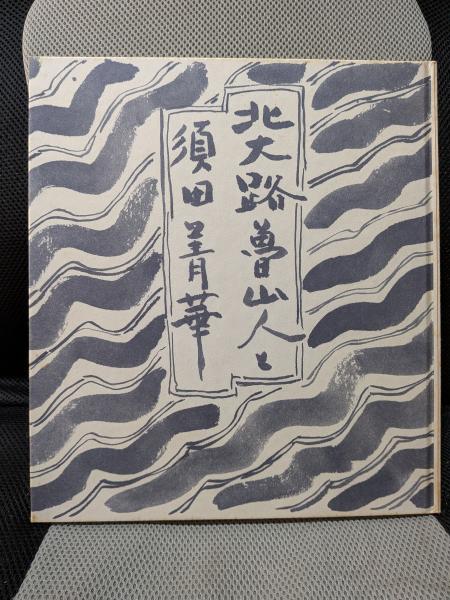 北大路魯山人と
須田菁華